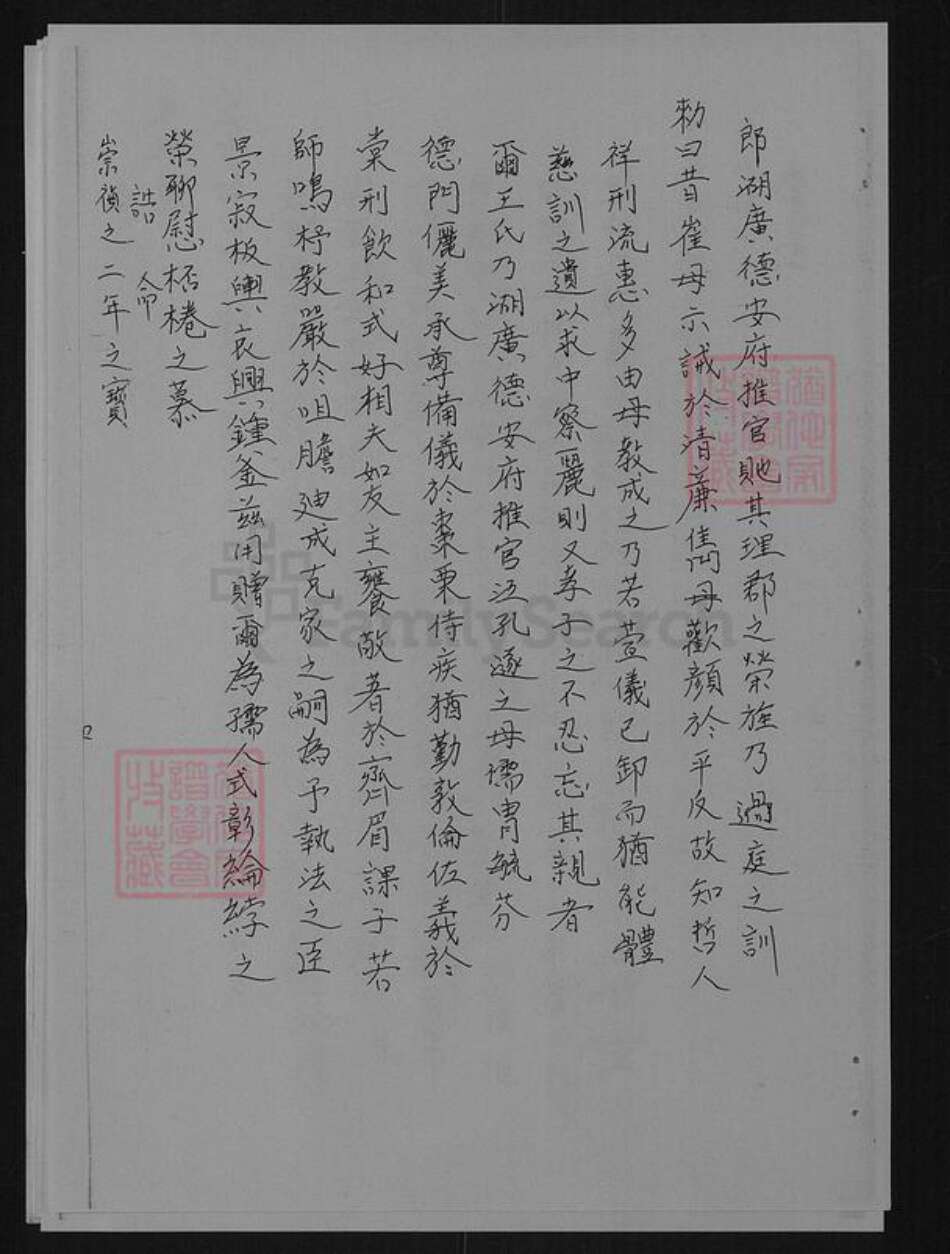 郎湖廣德安府推官貤其理郡之榮旌乃過庭之訓
勑曰昔崔母示誡於清廉雋母歡顏於平反故知哲人
祥刑流惠多由母教成之乃若萱儀已卸而猶能體
慈訓之遺以求中察麗則又孝子之不忍忘其親者
爾王氏乃湖廣德安府推官 孔 之母儒胄毓芬
德門儷美承尊備儀於棗栗侍疾猶勤敦倫佐義於
棠刑飲和式好相夫如友主饔敬著於齊眉課子若
師鳴杼教嚴於咀膽迪成克家之嗣為予執法之臣
景寂板輿哀興鍾釜茲用贈爾為孺人式彰綸綍之
榮聊慰桮棬之慕
誥命
崇禎之二年之寶
FamilySearch
譜學會
藏
譜學會
藏